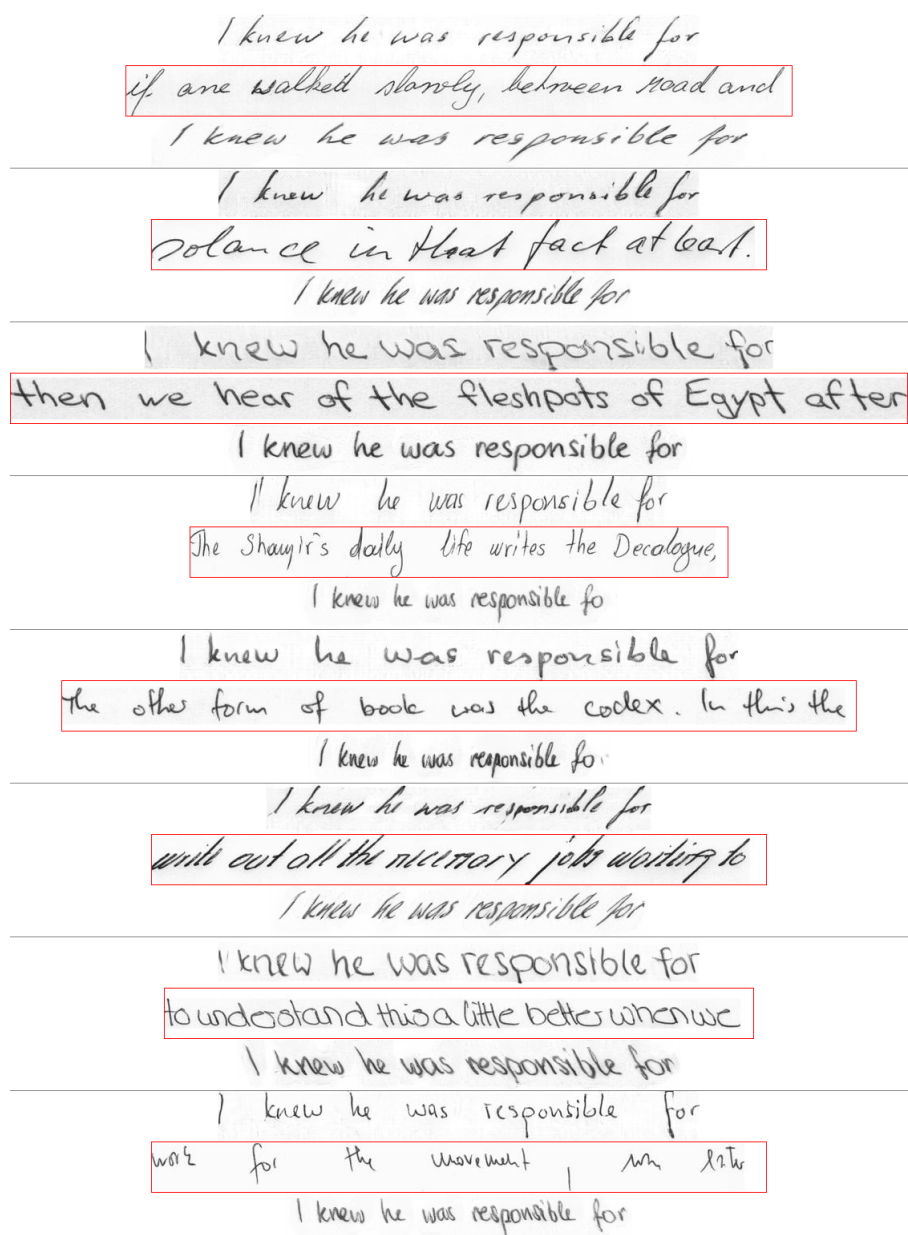 I knew he was responsible for
if one walkett slowly, between road and
I knew he was responsible for
I knew he was responsible for
solance in that fact at least.
I knew he was responsible for
I knew he was responsible for
then we hear of the fleshpots of Egypt after
I knew he was responsible for
I knew he was responsible for
The Shayir's daily life writes the Decalogue,
I knew he was responsible fo
I knew he was responsible for
The other form of book was the codex. In this the
I knew he was responsible fo
I knew he was responsible for
write out all the necessary jobs waiting to
I knew he was responsible for
I knew he was responsible for
to understand this a little better when we
I knew he was responsible for
I knew he was responsible for
work for the movement, was later
I knew he was responsible for